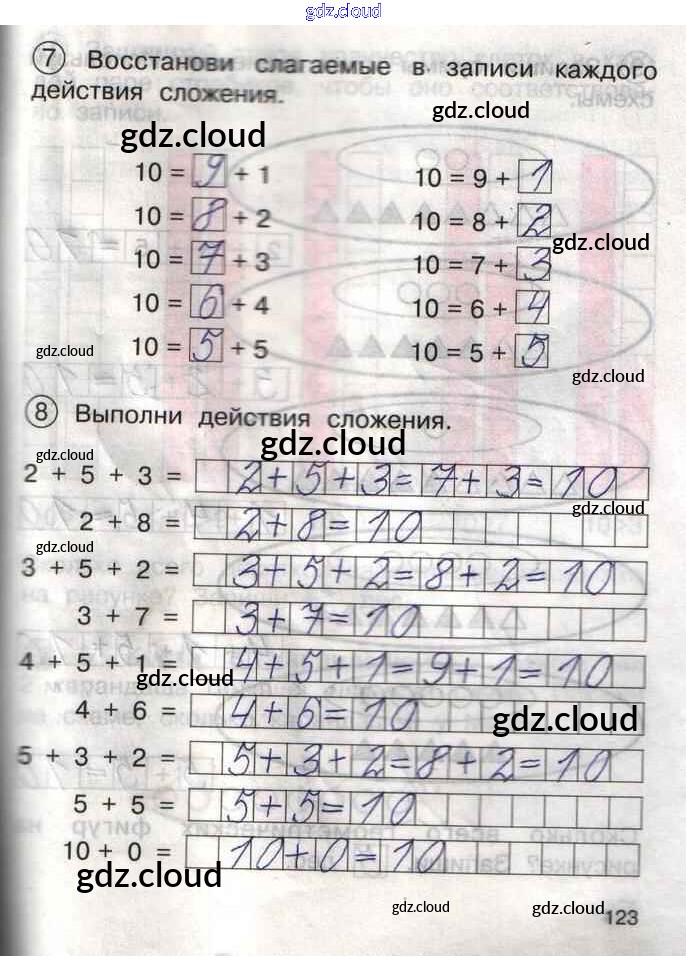 gdz.cloud
7 Восстанови слагаемые в записи каждого
действия сложения.
gdz.cloud
gdz.cloud
10 = 9 + 1
10 = 9 + 1
10 = 8 + 2
10 = 8 + 2
gdz.cloud
10 = 7 + 3
10 = 7 + 3
10 = 6 + 4
10 = 6 + 4
10 = 5 + 5
10 = 5 + 5
gdz.cloud
gdz.cloud
8 Выполни действия сложения.
gdz.cloud
gdz.cloud
2 + 5 + 3 = 2+5+3=7+3=10
gdz.cloud
2 + 8 = 2+8=10
gdz.cloud
3 + 5 + 2 = 3+5+2=8+2=10
3 + 7 = 3+7=10
4 + 5 + 1 = 4+5+1=9+1=10
gdz.cloud
4 + 6 = 4+6=10
gdz.cloud
5 + 3 + 2 = 5+3+2=8+2=10
5 + 5 = 5+5=10
10 + 0 = 10+0=10
gdz.cloud
gdz.cloud
gdz.cloud
123